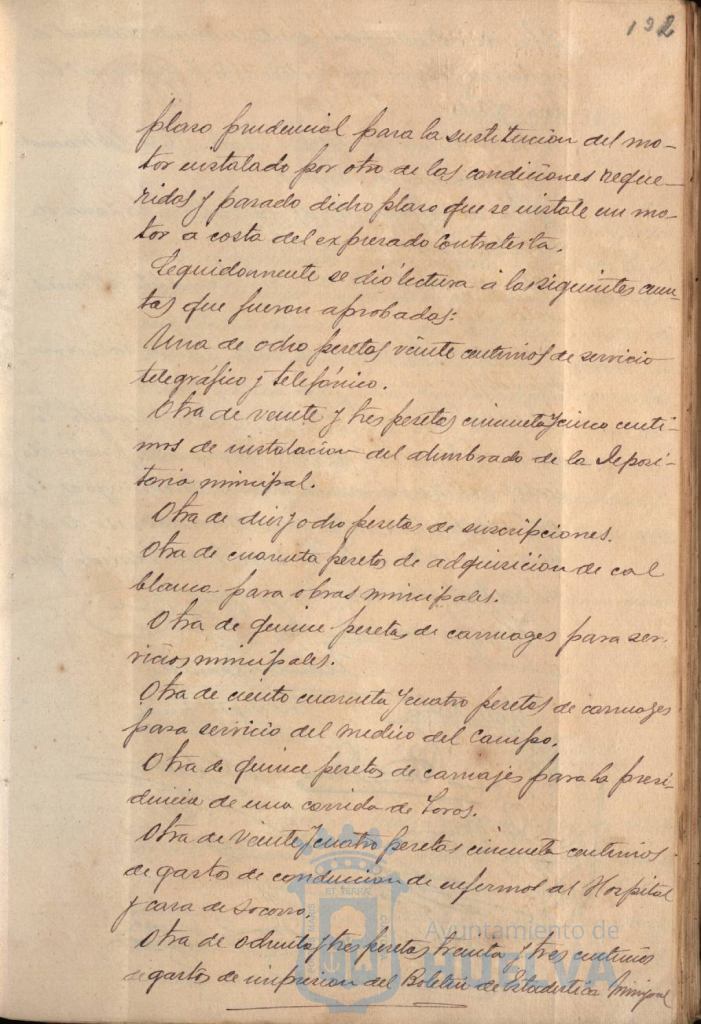 132
plazo prudencial para la sustitucion del mo-
tor instalado por otro de las condiciones reque-
ridas y pasado dicho plazo que se instale un mo-
tor a costa del expresado Contratista.
Seguidamente se dió lectura á las siguientes cuen-
tas que fueron aprobadas:
Una de ocho pesetas veinte centimos de servicio
telegráfico y telefónico.
Otra de veinte y tres pesetas cincuenta y cinco centi-
mos de instalacion del alumbrado de la Deposi-
taria municipal.
Otra de diez y ocho pesetas de suscripciones.
Otra de cuarenta pesetas de adquisicion de cal
blanca para obras municipales.
Otra de quince pesetas de carruages para ser-
vicios municipales.
Otra de ciento cuarenta y cuatro pesetas de carruages
para servicio del medico del Campo.
Otra de quince pesetas de carruajes para la presi-
dencia de una corrida de Toros.
Otra de veinte y cuatro pesetas cincuenta centimos
de gastos de conduccion de enfermos al Hospital
y casa de Socorro.
Otra de ochenta y tres pesetas treinta y tres centimos
de gastos de impresion del Boletin de Estadistica Municipal
Ayuntamiento de
HUELVA